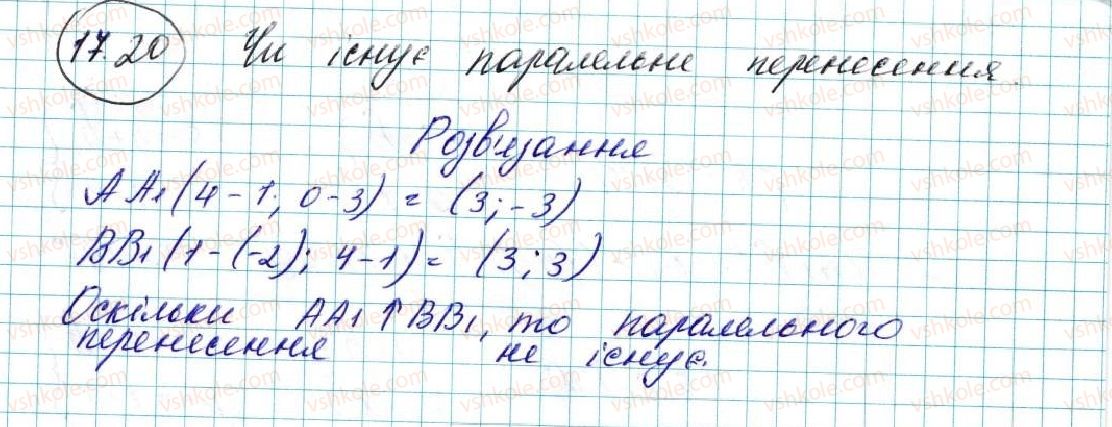 17.20 Чи існує паралельне перенесення.
Розв'язання
AA₁(4-1; 0-3) = (3;-3)
BB₁(1-(-2); 4-1) = (3;3)
Оскільки AA₁ ⇈ BB₁, то паралельного
перенесення не існує.